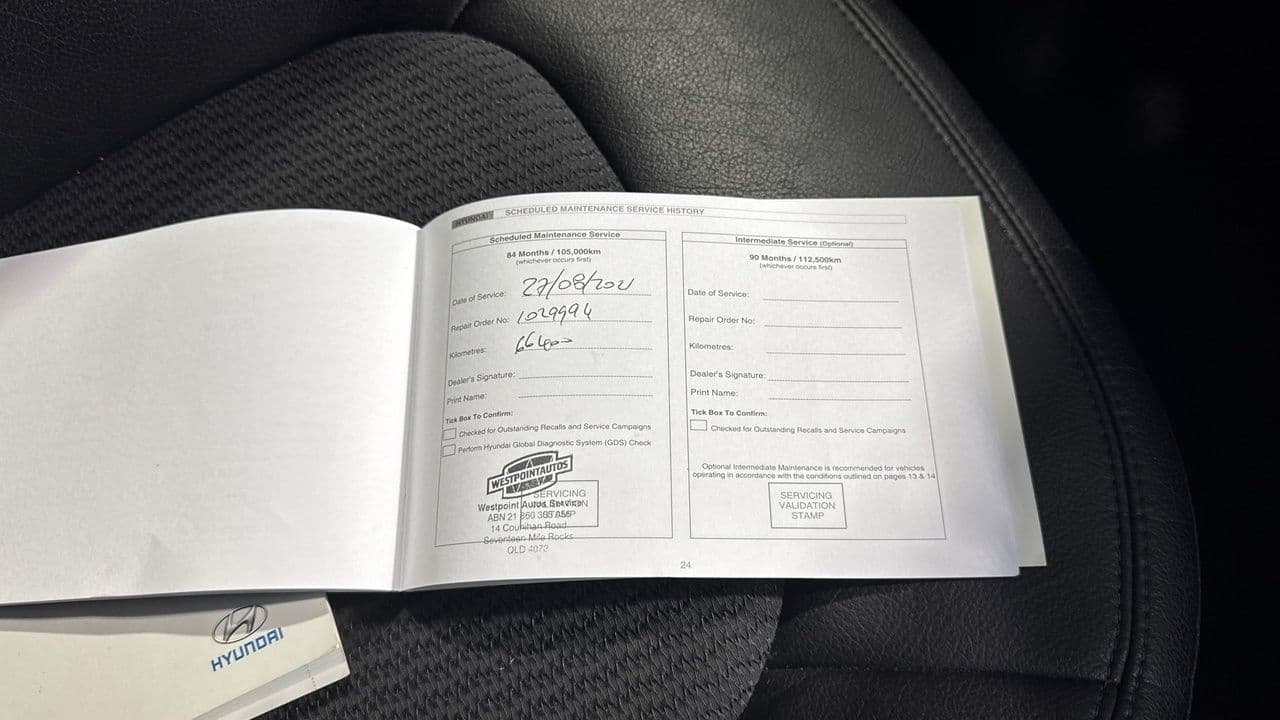 HYUNDAI SCHEDULED MAINTENANCE SERVICE HISTORY
Scheduled Maintenance Service
84 Months / 105,000km
(whichever occurs first)
Date of Service: 27/08/2021
Repair Order No: 1029994
Kilometres: 66400
Dealer's Signature:
Print Name:
Tick Box To Confirm:
Checked for Outstanding Recalls and Service Campaigns
Perform Hyundai Global Diagnostic System (GDS) Check
WESTPOINTAUTOS
SERVICING
Westpoint Autos Service
ABN 21 860
STAMP
14 Counihan Road
Seventeen Mile Rocks
QLD 4073
Intermediate Service (Optional)
90 Months / 112,500km
(whichever occurs first)
Date of Service:
Repair Order No:
Kilometres:
Dealer's Signature:
Print Name:
Tick Box To Confirm:
Checked for Outstanding Recalls and Service Campaigns
Optional Intermediate Maintenance is recommended for vehicles
operating in accordance with the conditions outlined on pages 13 & 14
SERVICING
VALIDATION
STAMP
24
HYUNDAI